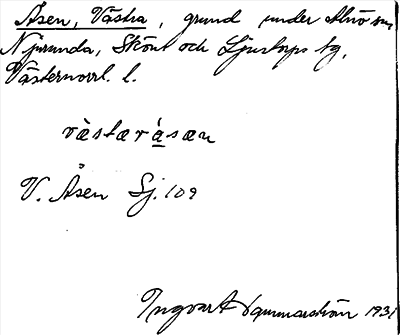 Åsen, Västra, grund under Alnö sn,
Njurunda, Skönt och Ljustorps tg,
Västernorrl. l.
västæråsæn
V. Åsen Sj. 109
Ingvart 1931